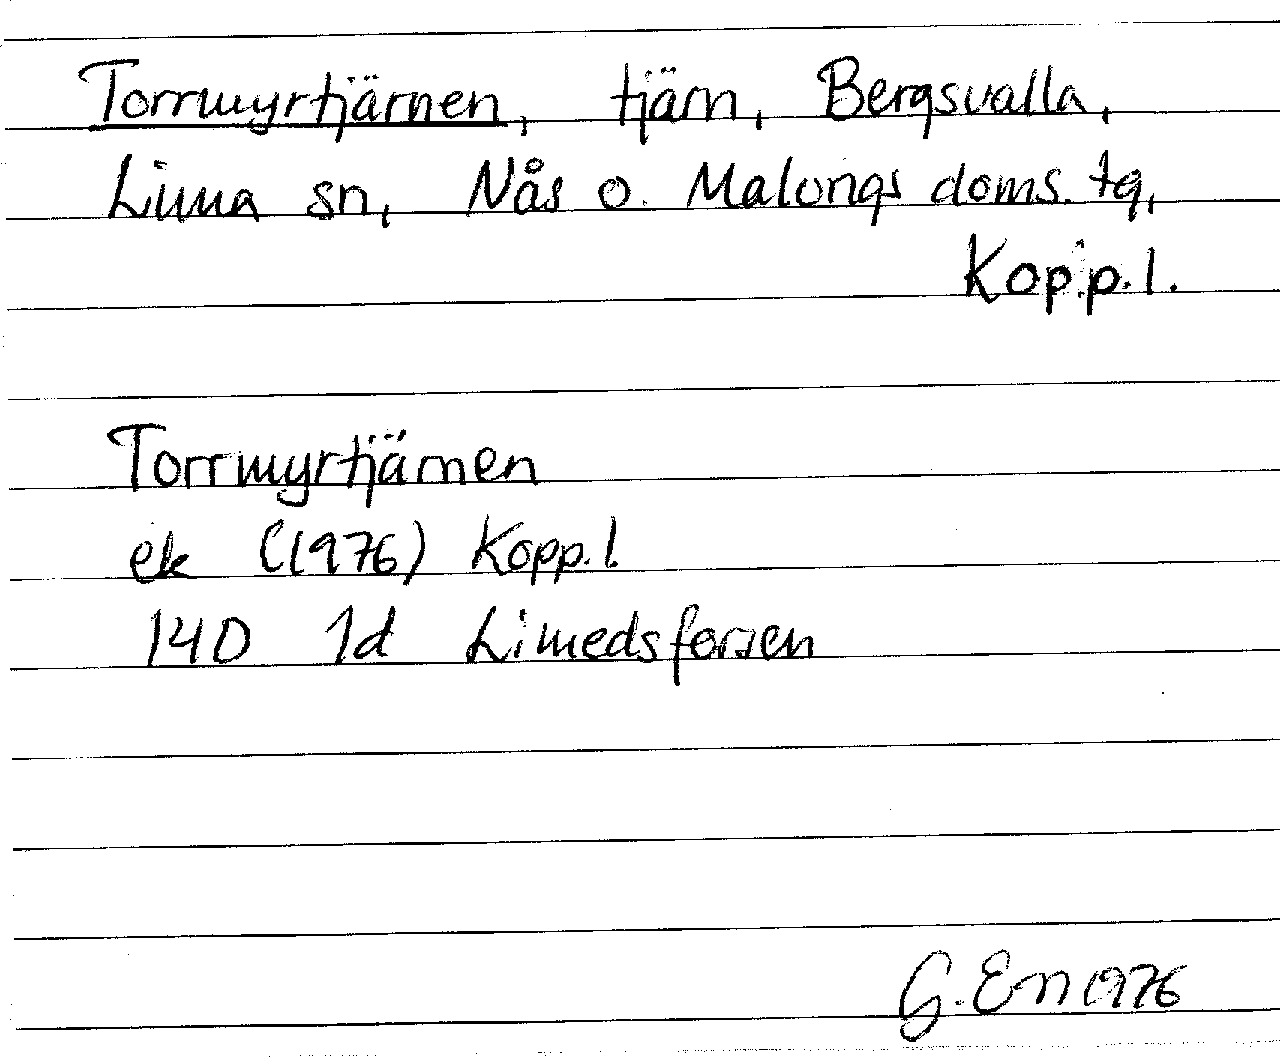 Torrmyrtjärnen, tjärn, Bergsvalla,
Lima sn, Nås o. Malungs doms. tg,
Kopp.l.
Torrmyrtjärnen
ek (1976) Kopp.l.
14D 1d Limedsforsen
G. En 1976